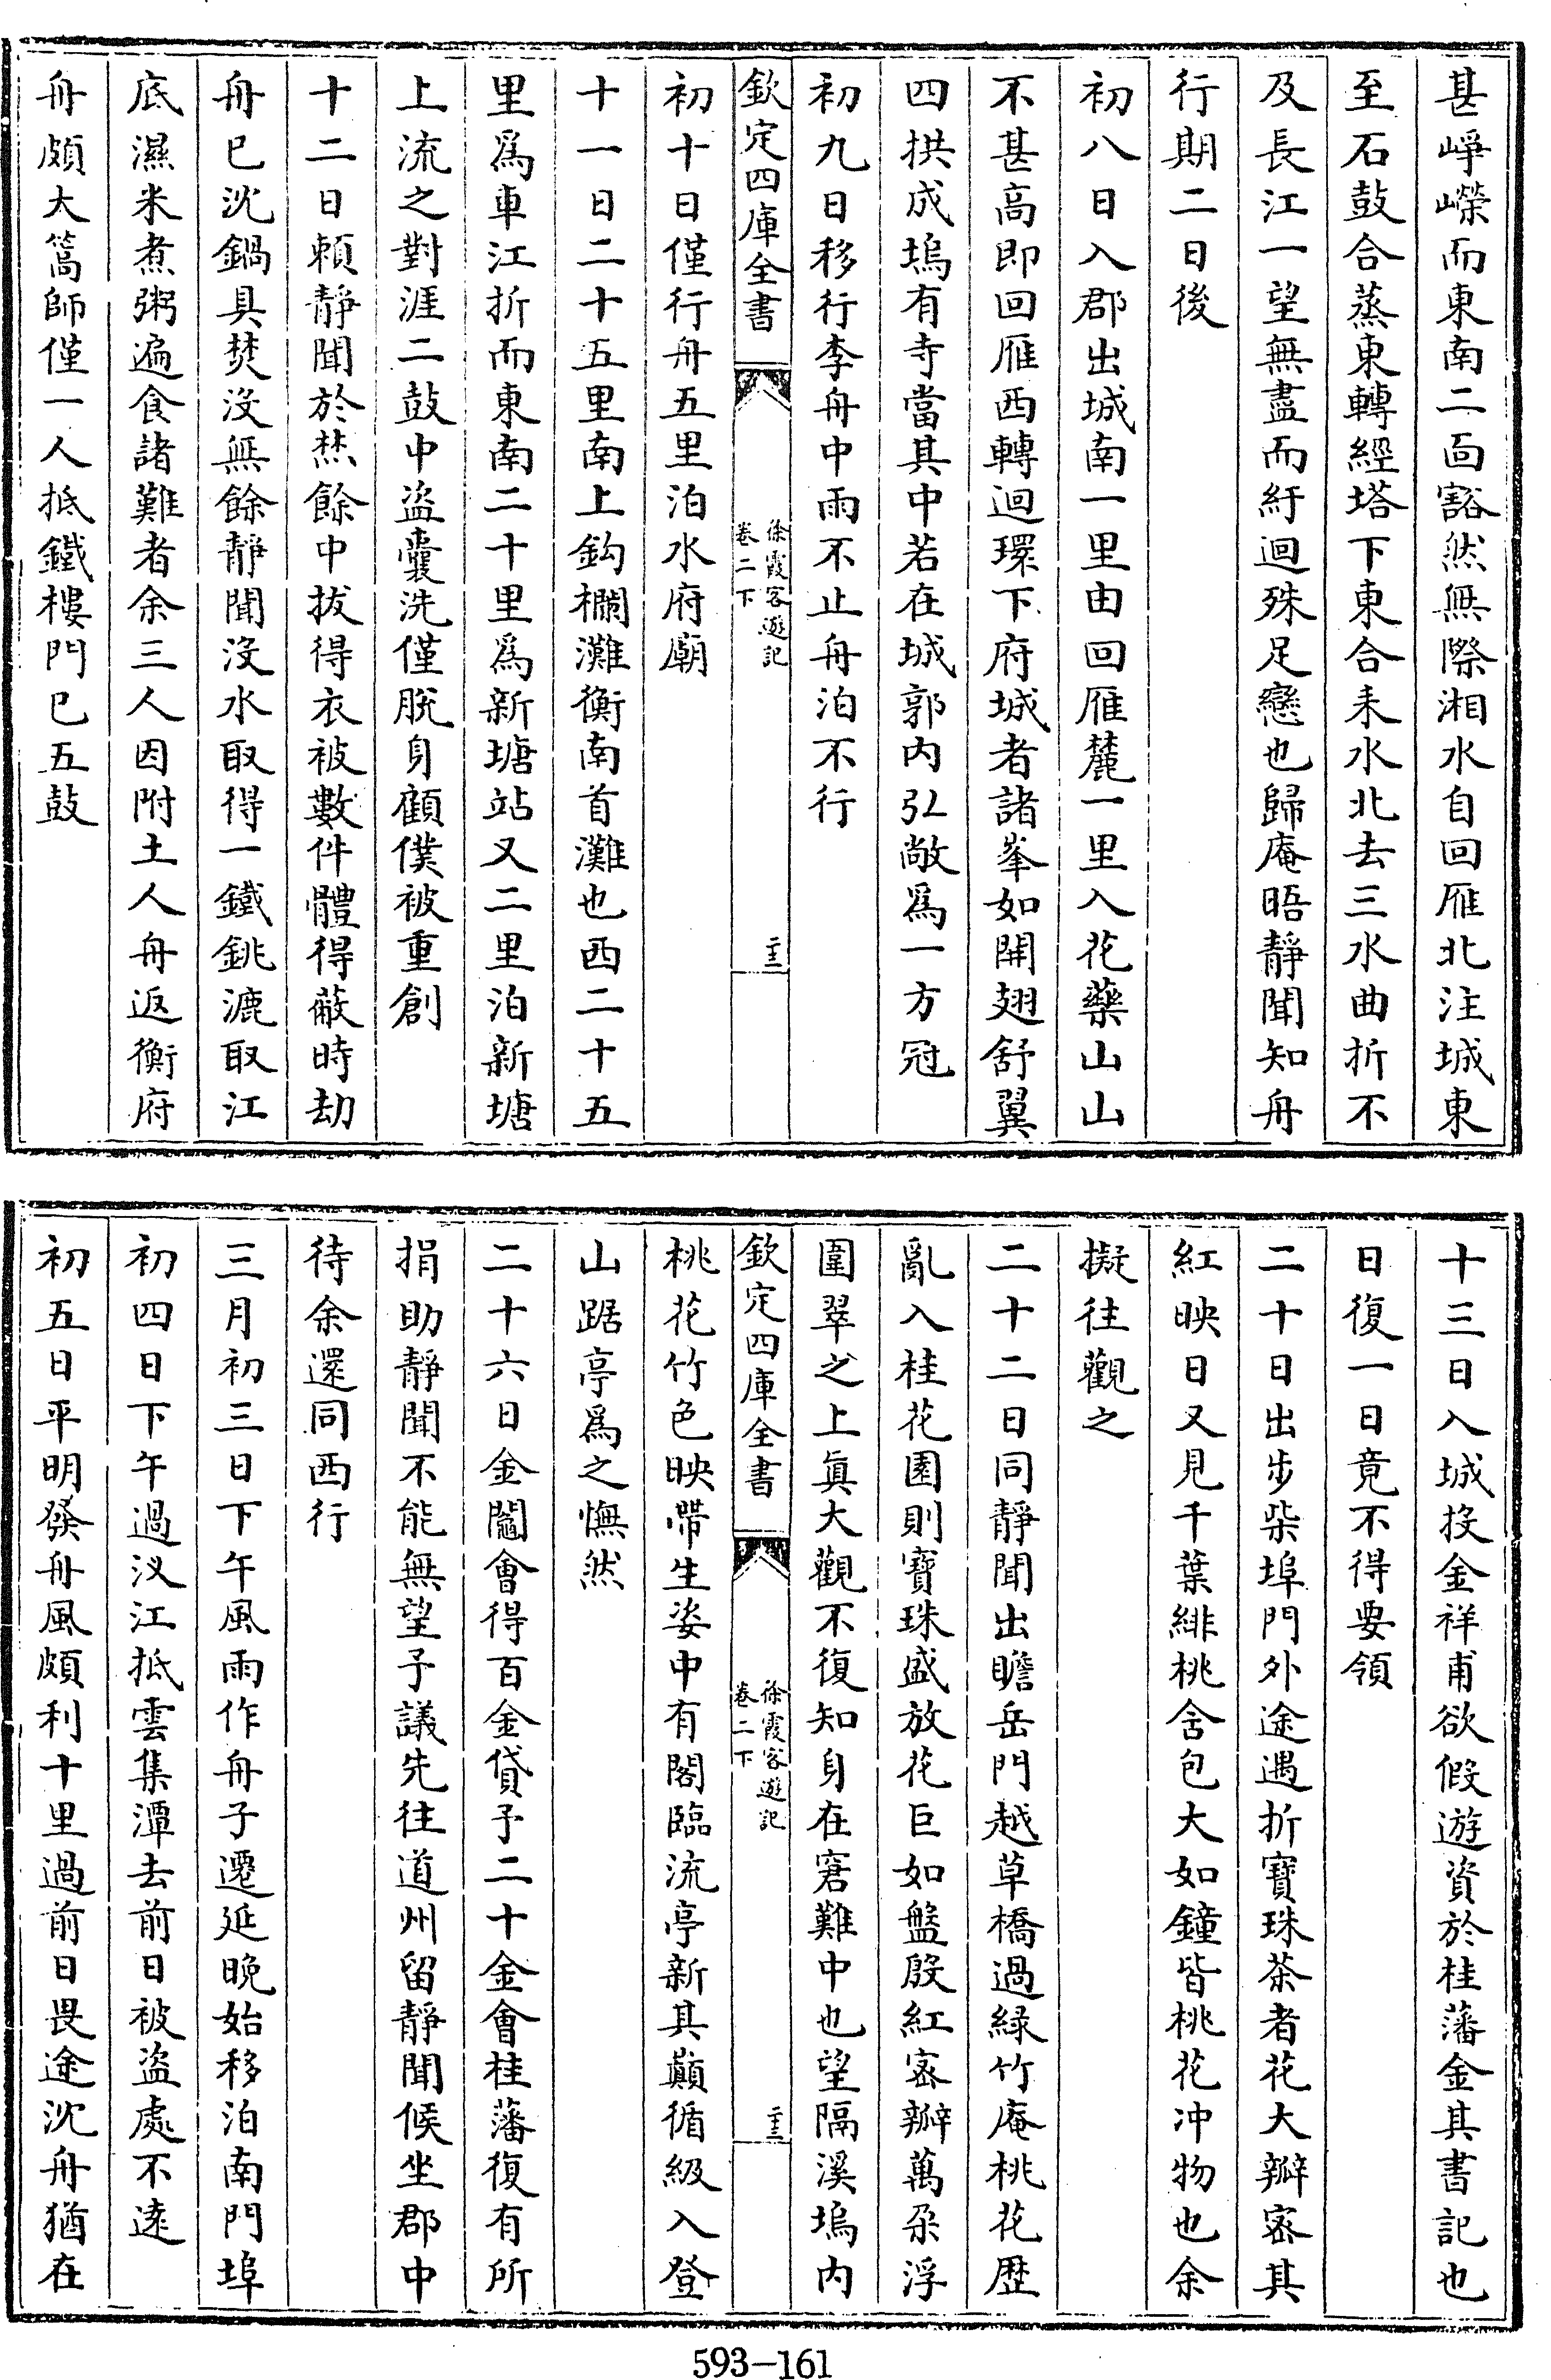 甚崢嶸而東南二面豁然無際湘水自回雁北注城東
至石鼓合蒸東轉經塔下東合耒水北去三水曲折不
及長江一望無盡而紆迴殊足戀也歸庵晤靜聞知舟
行期二日後
初八日入郡出城南一里由回雁麓一里入花藥山山
不甚高即回雁西轉迴環下府城者諸峯如開翅舒翼
四拱成塢有寺當其中若在城郭內弘敞爲一方冠
初九日移行李舟中雨不止舟泊不行
欽定四庫全書
徐霞客遊記
卷二下
初十日僅行舟五里泊水府廟
十一日二十五里南上鈎欄灘衡南首灘也西二十五
里爲車江折而東南二十里爲新塘站又二里泊新塘
上流之對涯二鼓中盜囊洗僅脫身顧僕被重創
十二日賴靜聞於焚餘中拔得衣被數件體得蔽時劫
舟已沈鍋具焚沒無餘靜聞沒水取得一鐵銚漉取江
底濕米煮粥遍食諸難者余三人因附土人舟返衡府
舟頗大篙師僅一人抵鐵樓門已五鼓
十三日入城投金祥甫欲假遊資於桂藩金其書記也
日復一日竟不得要領
二十日出步柴埠門外途遇折寶珠茶者花大瓣密其
紅映日又見千葉緋桃含包大如鐘皆桃花冲物也余
擬往觀之
二十二日同靜聞出瞻岳門越草橋過綠竹庵桃花歷
亂入桂花園則寶珠盛放花巨如盤殷紅密瓣萬朶浮
圍翠之上眞大觀不復知身在窘難中也望隔溪塢內
欽定四庫全書
徐霞客遊記
卷二下
桃花竹色映帶生姿中有閣臨流亭新其巔循級入登
山踞亭爲之憮然
二十六日金鬮會得百金貸予二十金會桂藩復有所
捐助靜聞不能無望予議先往道州留靜聞候坐郡中
待余還同西行
三月初三日下午風雨作舟子遷延晚始移泊南門埠
初四日下午過汊江抵雲集潭去前日被盜處不遠
初五日平明發舟風頗利十里過前日畏途沈舟猶在
593-161